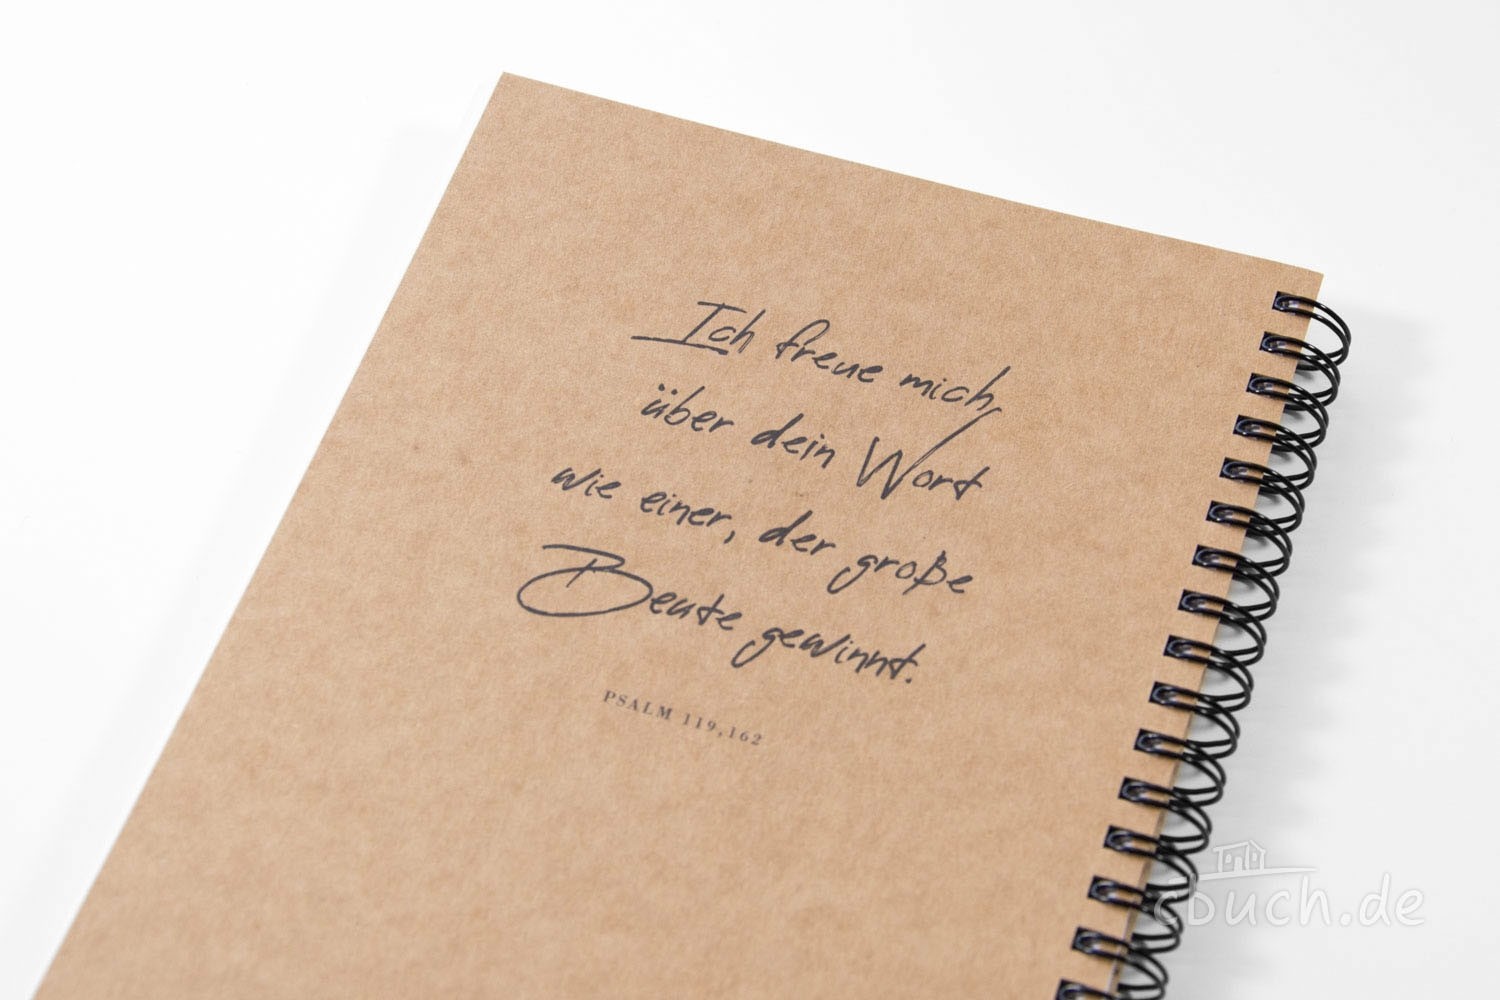 Ich freue mich
über dein Wort
wie einer, der große
Beute gewinnt.
PSALM 119,162
cbuch.de